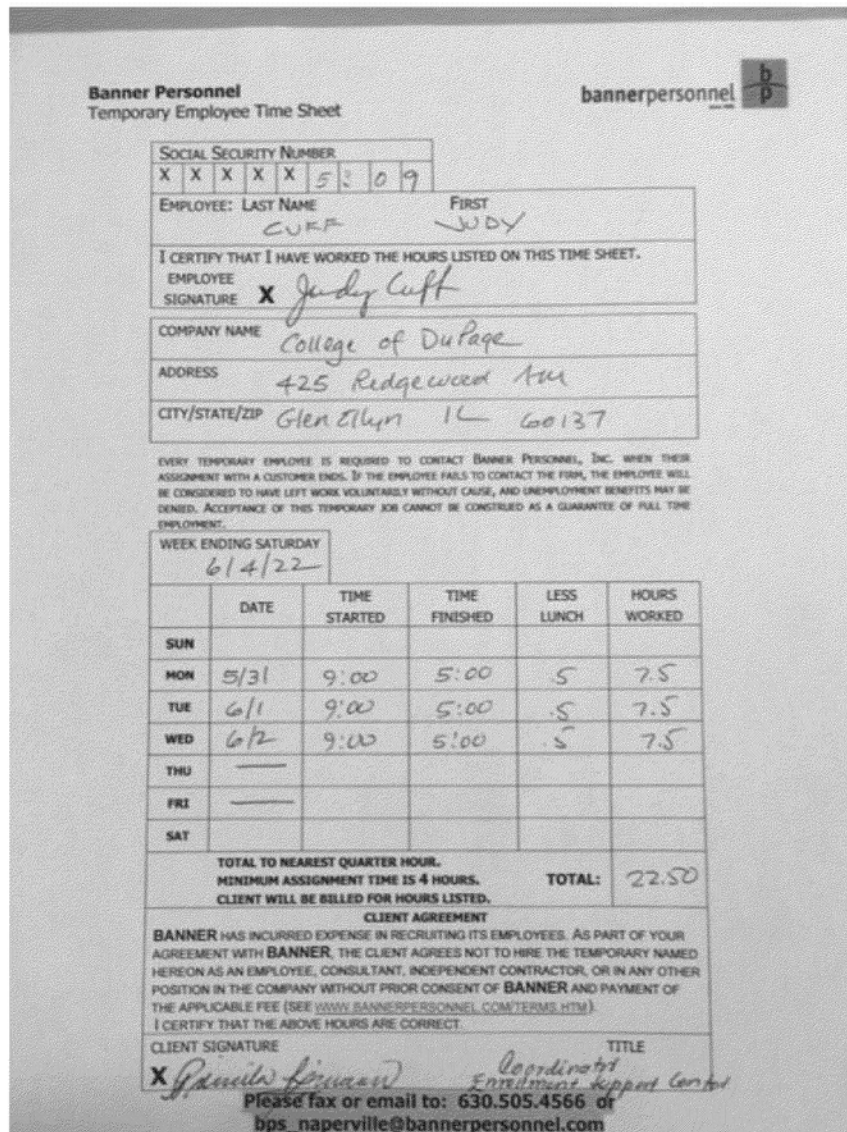 Banner Personnel
Temporary Employee Time Sheet
bannerpersonnel
b
p
SOCIAL SECURITY NUMBER
X X X X X 5 3 0 9
EMPLOYEE: LAST NAME FIRST
CUFF JUDY
I CERTIFY THAT I HAVE WORKED THE HOURS LISTED ON THIS TIME SHEET.
EMPLOYEE
SIGNATURE X Judy Cuff
COMPANY NAME College of DuPage
ADDRESS 425 Redgewood
CITY/STATE/ZIP Glen Ellyn IL 60137
EVERY TEMPORARY EMPLOYEE IS REQUIRED TO CONTACT BANNER PERSONNEL, INC. WHEN THEIR
ASSIGNMENT WITH A CUSTOMER ENDS. IF THE EMPLOYEE FAILS TO CONTACT THE FIRM, THE EMPLOYEE WILL
BE CONSIDERED TO HAVE LEFT WORK VOLUNTARILY WITHOUT CAUSE, AND UNEMPLOYMENT BENEFITS MAY BE
DENIED. ACCEPTANCE OF THIS TEMPORARY JOB CANNOT BE CONSTRUED AS A GUARANTEE OF FULL TIME
EMPLOYMENT.
WEEK ENDING SATURDAY
6/4/22
DATE TIME STARTED TIME FINISHED LESS LUNCH HOURS WORKED
SUN
MON 5/31 9:00 5:00 .5 7.5
TUE 6/1 9:00 5:00 .5 7.5
WED 6/2 9:00 5:00 .5 7.5
THU —
FRI —
SAT
TOTAL TO NEAREST QUARTER HOUR.
MINIMUM ASSIGNMENT TIME IS 4 HOURS. TOTAL: 22.50
CLIENT WILL BE BILLED FOR HOURS LISTED.
CLIENT AGREEMENT
BANNER HAS INCURRED EXPENSE IN RECRUITING ITS EMPLOYEES. AS PART OF YOUR
AGREEMENT WITH BANNER, THE CLIENT AGREES NOT TO HIRE THE TEMPORARY NAMED
HEREON AS AN EMPLOYEE, CONSULTANT, INDEPENDENT CONTRACTOR, OR IN ANY OTHER
POSITION IN THE COMPANY WITHOUT PRIOR CONSENT OF BANNER AND PAYMENT OF
THE APPLICABLE FEE (SEE WWW.BANNERPERSONNEL.COM/TERMS.HTM).
I CERTIFY THAT THE ABOVE HOURS ARE CORRECT.
CLIENT SIGNATURE TITLE
X Coordinator
Enrollment Support Center
Please fax or email to: 630.505.4566 or
bps_naperville@bannerpersonnel.com